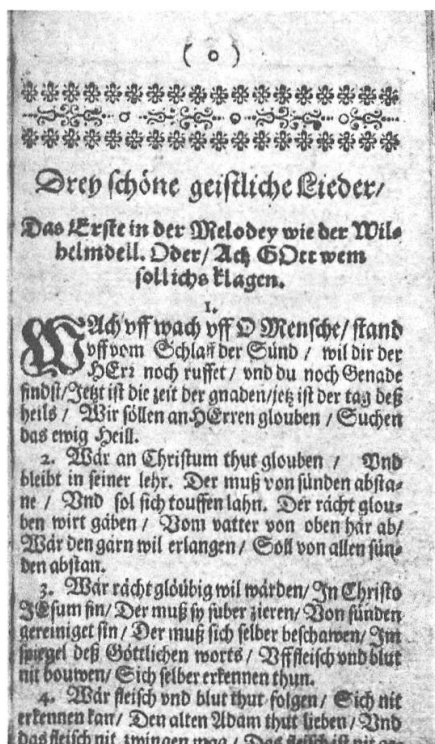 ( o )
Drey schöne geistliche Lieder/
Das Erste in der Melodey wie der Wil-
helmdell. Oder/ Ach GOtt wem
soll ichs klagen.
1.
WAch vff wach vff O Mensche/ stand
vff vom Schlaff der Sünd / wil dir der
HErr noch ruffet / vnd du noch Genade
findst/ Jetzt ist die zeit der gnaden/ jetz ist der tag deß
heils / Wir söllen an HErren glouben / Suchen
das ewig Heill.
2. Wär an Christum thut glouben / Vnd
bleibt in seiner lehr. Der muß von sünden absta-
ne / Vnd sol sich touffen lahn. Der rächt glou-
ben wirt gäben / Vom vatter von oben här ab/
Wär den gärn wil erlangen / Söll von allen sün-
den abstan.
3. Wär rächt glöübig wil wärden/ In Christo
JEsum sin/ Der muß sy suber zieren/ Von sünden
gereiniget sin/ Der muß sich selber beschawen/ Im
spiegel deß Göttlichen worts/ Vff fleisch vnd blut
nit bouwen/ Sich selber erkennen thun.
4. Wär fleisch vnd blut thut folgen/ Sich nit
erkennen kan/ Den alten Adam thut lieben/ Vnd
das fleisch nit zwingen mag/ Das fleisch ist nit